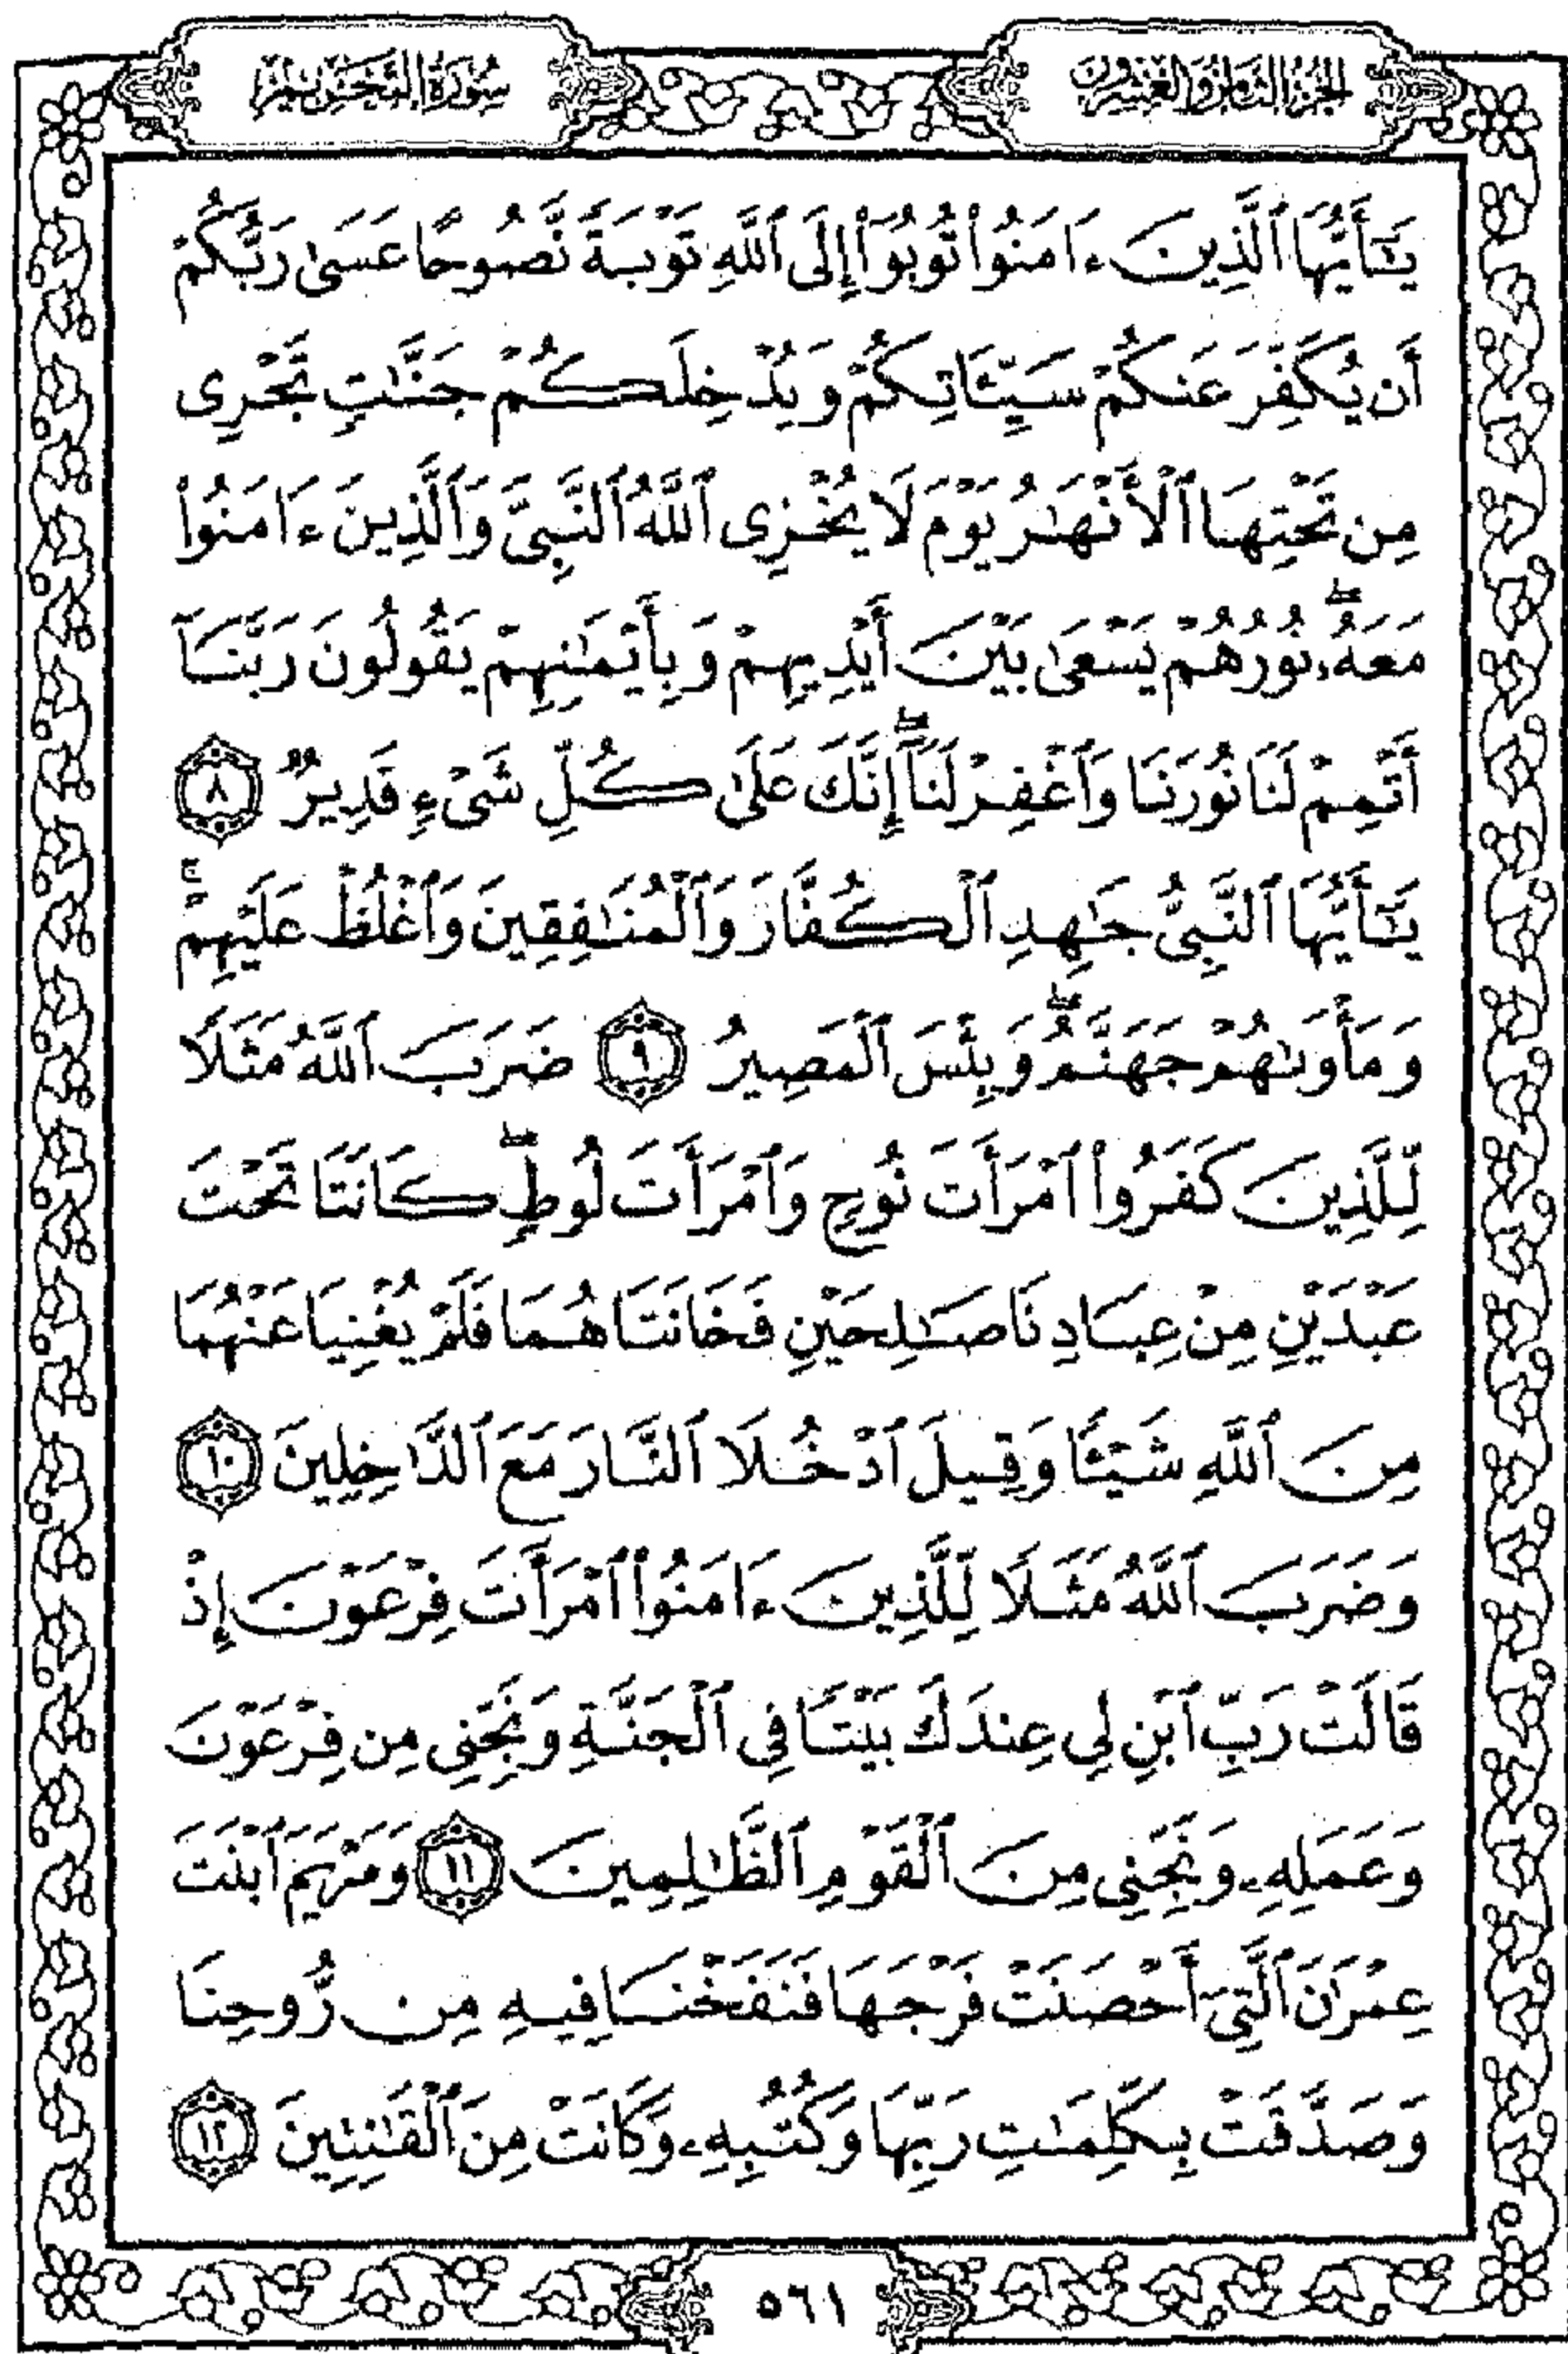 الجزء الثامن والعشرون
سورة التحريم
يَـٰٓأَيُّهَا ٱلَّذِينَ ءَامَنُوا۟ تُوبُوٓا۟ إِلَى ٱللَّهِ تَوْبَةً نَّصُوحًا عَسَىٰ رَبُّكُمْ
أَن يُكَفِّرَ عَنكُمْ سَيِّـَٔاتِكُمْ وَيُدْخِلَكُمْ جَنَّـٰتٍ تَجْرِى
مِن تَحْتِهَا ٱلْأَنْهَـٰرُ يَوْمَ لَا يُخْزِى ٱللَّهُ ٱلنَّبِىَّ وَٱلَّذِينَ ءَامَنُوا۟
مَعَهُۥ ۖ نُورُهُمْ يَسْعَىٰ بَيْنَ أَيْدِيهِمْ وَبِأَيْمَـٰنِهِمْ يَقُولُونَ رَبَّنَآ
أَتْمِمْ لَنَا نُورَنَا وَٱغْفِرْ لَنَآ ۖ إِنَّكَ عَلَىٰ كُلِّ شَىْءٍ قَدِيرٌ ٨
يَـٰٓأَيُّهَا ٱلنَّبِىُّ جَـٰهِدِ ٱلْكُفَّارَ وَٱلْمُنَـٰفِقِينَ وَٱغْلُظْ عَلَيْهِمْ ۚ
وَمَأْوَىٰهُمْ جَهَنَّمُ ۖ وَبِئْسَ ٱلْمَصِيرُ ٩ ضَرَبَ ٱللَّهُ مَثَلًا
لِّلَّذِينَ كَفَرُوا۟ ٱمْرَأَتَ نُوحٍ وَٱمْرَأَتَ لُوطٍ ۖ كَانَتَا تَحْتَ
عَبْدَيْنِ مِنْ عِبَادِنَا صَـٰلِحَيْنِ فَخَانَتَاهُمَا فَلَمْ يُغْنِيَا عَنْهُمَا
مِنَ ٱللَّهِ شَيْـًٔا وَقِيلَ ٱدْخُلَا ٱلنَّارَ مَعَ ٱلدَّٰخِلِينَ ١٠
وَضَرَبَ ٱللَّهُ مَثَلًا لِّلَّذِينَ ءَامَنُوا۟ ٱمْرَأَتَ فِرْعَوْنَ إِذْ
قَالَتْ رَبِّ ٱبْنِ لِى عِندَكَ بَيْتًا فِى ٱلْجَنَّةِ وَنَجِّنِى مِن فِرْعَوْنَ
وَعَمَلِهِۦ وَنَجِّنِى مِنَ ٱلْقَوْمِ ٱلظَّـٰلِمِينَ ١١ وَمَرْيَمَ ٱبْنَتَ
عِمْرَٰنَ ٱلَّتِىٓ أَحْصَنَتْ فَرْجَهَا فَنَفَخْنَا فِيهِ مِن رُّوحِنَا
وَصَدَّقَتْ بِكَلِمَـٰتِ رَبِّهَا وَكُتُبِهِۦ وَكَانَتْ مِنَ ٱلْقَـٰنِتِينَ ١٢
٥٦١